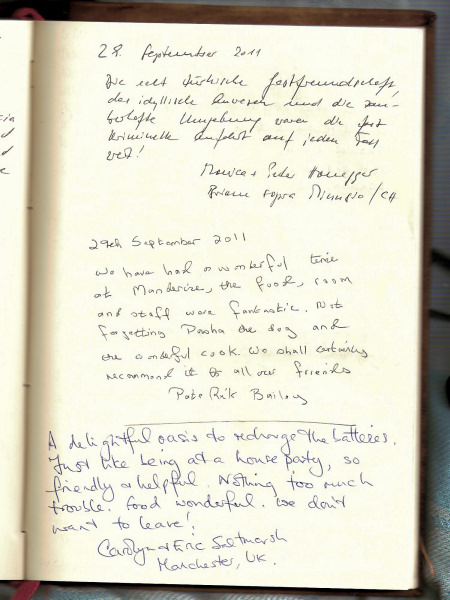 28. September 2011
Die echt türkische Gastfreundschaft,
das idyllische Anwesen und die zau-
berhafte Umgebung waren die fast
kriminelle Anfahrt auf jeden Fall
wert!
Monica + Peter Honegger
Brione sopra Minusio / CH
29th September 2011
We have had a wonderful time
at Manderine, the food, room
and staff were fantastic. Not
forgetting Pasha the dog and
the wonderful cook. We shall certainly
recommend it to all our friends
Pate Rik Bailey
A delightful oasis to recharge the batteries.
Just like being at a house party, so
friendly & helpful. Nothing too much
trouble. Food wonderful. We don't
want to leave!
Carolyn & Eric Saltmarsh
Manchester, UK.